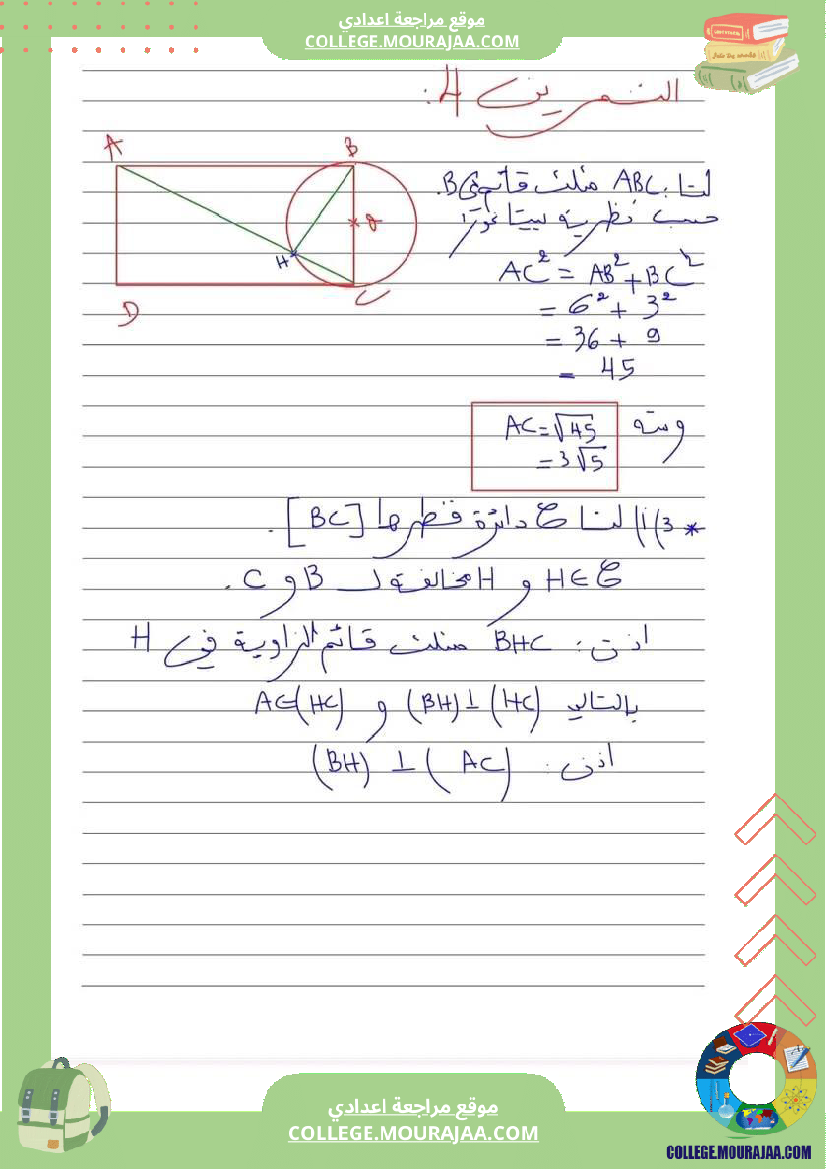 موقع مراجعة اعدادي
COLLEGE.MOURAJAA.COM
التمرين 4:
A
B
H
C
D
لنا: ABC مثلث قائم في B.
حسب نظرية بيتاغورا
AC² = AB² + BC²
= 6² + 3²
= 36 + 9
= 45
ومنه AC = √45
= 3√5
* 3) أ) لنا ζ دائرة قطرها [BC].
H∈ζ و H مخالفة لـ B و C.
اذن: BHC مثلث قائم الزاوية في H
بالتالي (BH) ⊥ (HC) و A∈(HC)
اذن: (BH) ⊥ (AC)
موقع مراجعة اعدادي
COLLEGE.MOURAJAA.COM
COLLEGE.MOURAJAA.COM